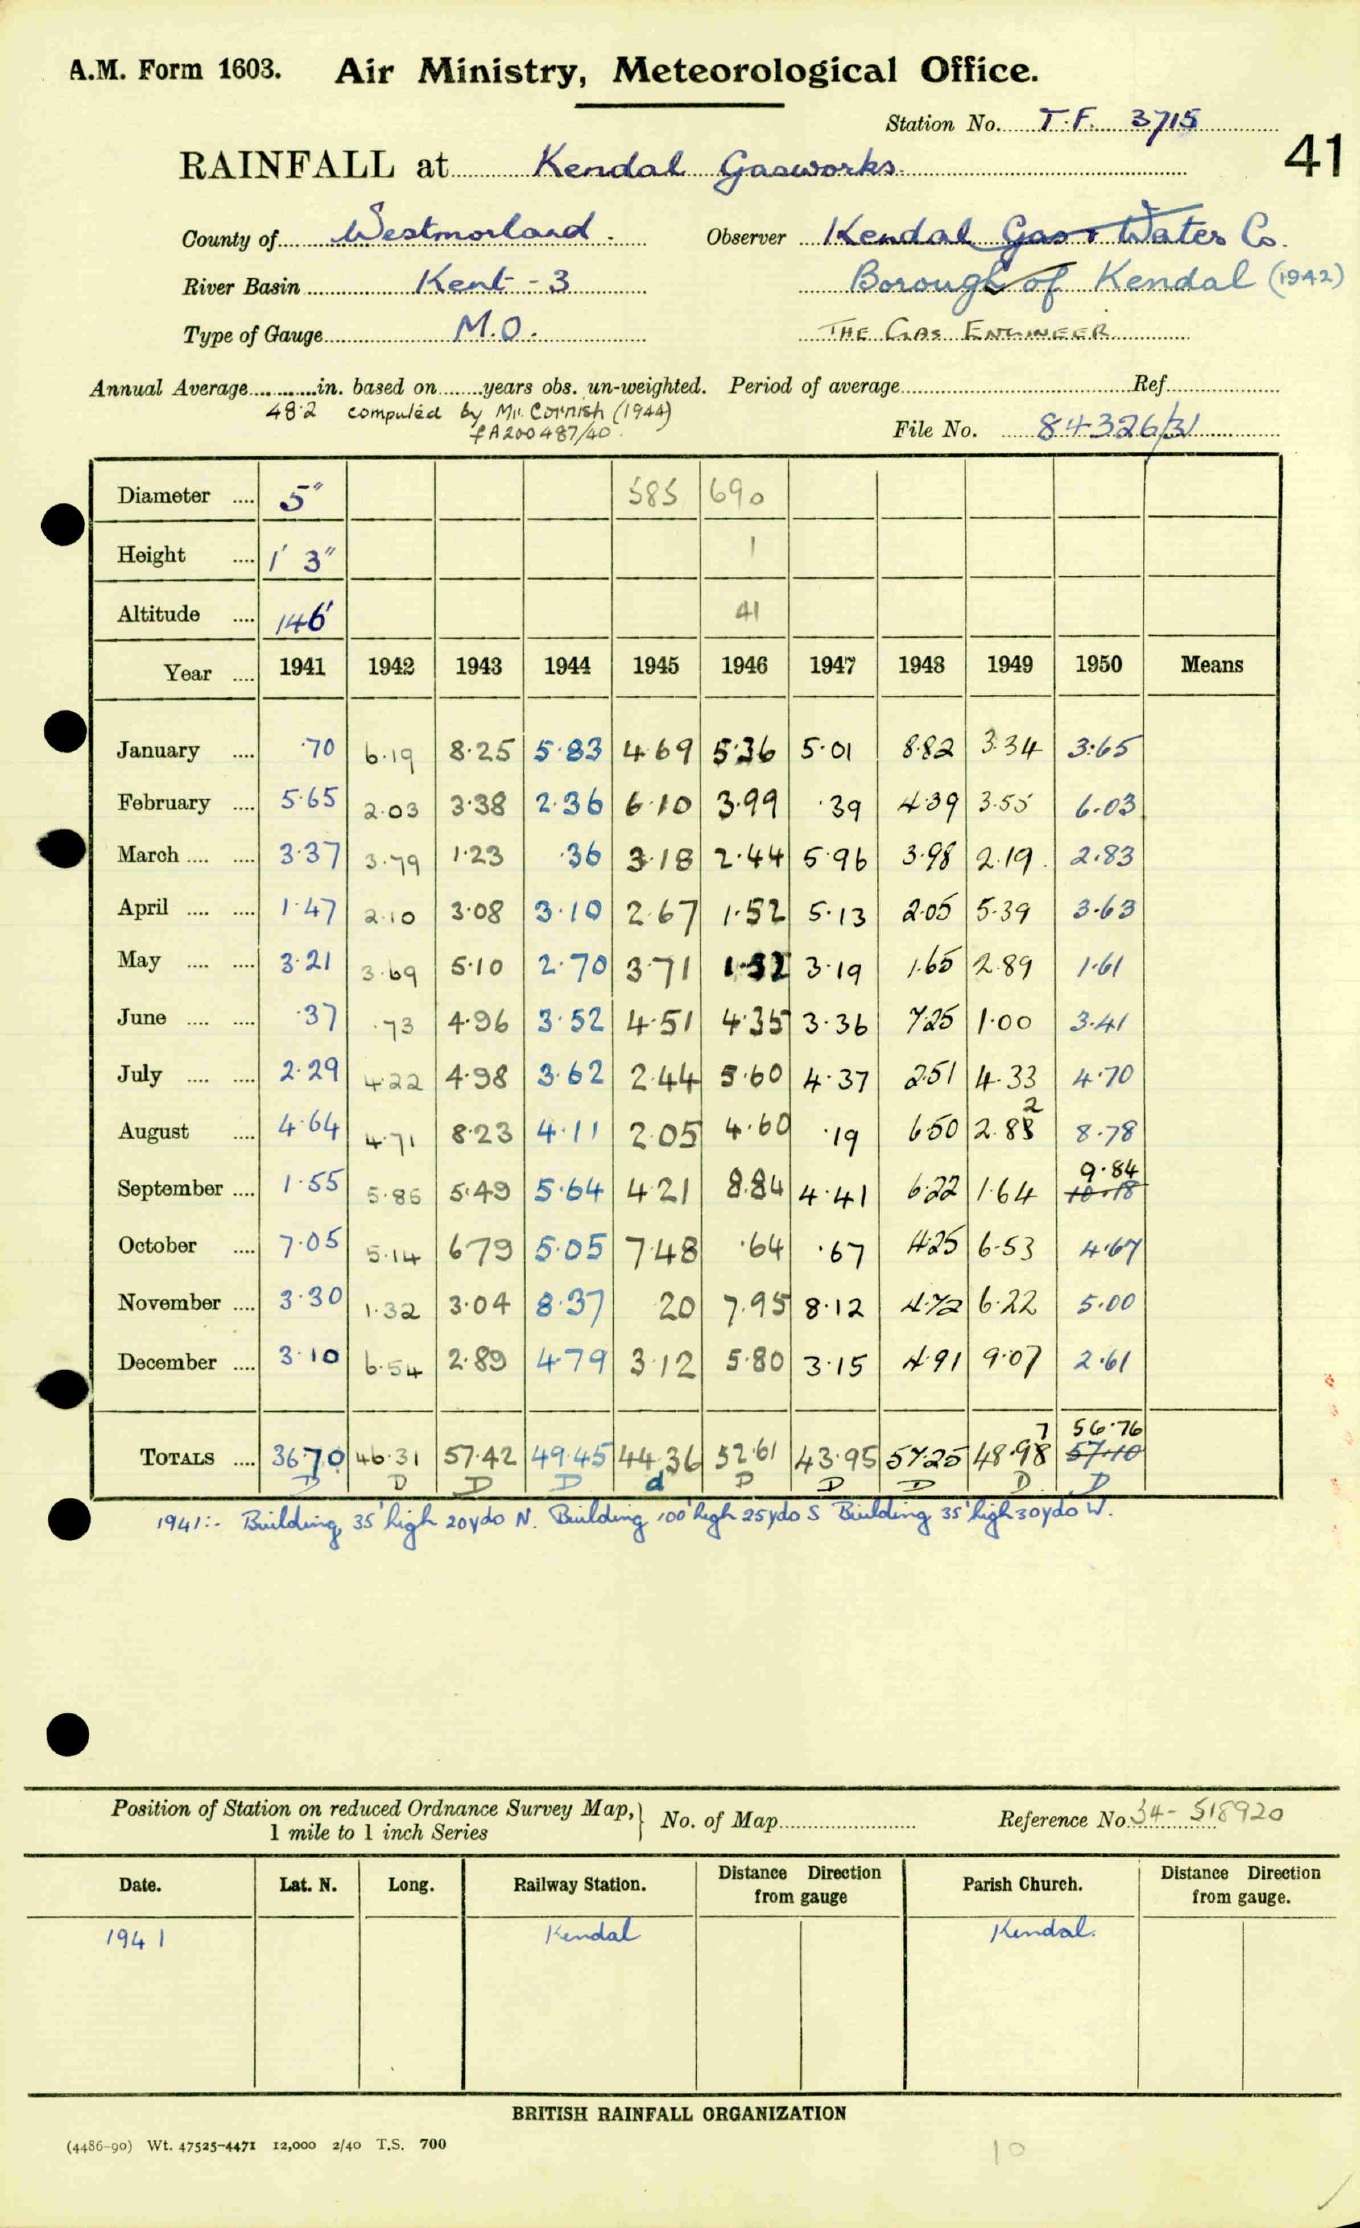 A.M. Form 1603. Air Ministry, Meteorological Office.
Station No. T.F. 3715
41
RAINFALL at Kendal Gasworks.
County of Westmorland. Observer Kendal Gas & Water Co.
River Basin Kent - 3 Borough of Kendal (1942)
Type of Gauge M.O. THE GAS ENGINEER
Annual Average in. based on years obs. un-weighted. Period of average Ref
48.2 computed by Mr. Cornish (1944)
fA200487/40.
File No. 84326/31
Diameter 5" 585 690
Height 1' 3" 1
Altitude 146' 41
Year 1941 1942 1943 1944 1945 1946 1947 1948 1949 1950 Means
January ·70 6·19 8·25 5·83 4·69 5·36 5·01 8·82 3·34 3·65
February 5·65 2·03 3·38 2·36 6·10 3·99 ·39 4·39 3·55 6·03
March 3·37 3·79 1·23 ·36 3·18 2·44 5·96 3·98 2·19 2·83
April 1·47 2·10 3·08 3·10 2·67 1·52 5·13 2·05 5·39 3·63
May 3·21 3·69 5·10 2·70 3·71 1·52 3·19 1·65 2·89 1·61
June ·37 ·73 4·96 3·52 4·51 4·35 3·36 7·25 1·00 3·41
July 2·29 4·22 4·98 3·62 2·44 5·60 4·37 2·51 4·33 4·70
2
August 4·64 4·71 8·23 4·11 2·05 4·60 ·19 6·50 2·88 8·78
9·84
September 1·55 5·86 5·49 5·64 4·21 8·84 4·41 6·22 1·64 10·18
October 7·05 5·14 6·79 5·05 7·48 ·64 ·67 4·25 6·53 4·67
November 3·30 1·32 3·04 8·37 20 7·95 8·12 4·72 6·22 5·00
December 3·10 6·54 2·89 4·79 3·12 5·80 3·15 4·91 9·07 2·61
7 56·76
TOTALS 36·70 46·31 57·42 49·45 44·36 52·61 43·95 57·25 48·98 57·10
D D D D d D D D D D
1941:- Building 35' high 20yds N. Building 100' high 25yds S Building 35' high 30yds W.
Position of Station on reduced Ordnance Survey Map, No. of Map Reference No 34- 518920
1 mile to 1 inch Series
Date. Lat. N. Long. Railway Station. Distance Direction from gauge Parish Church. Distance Direction from gauge.
1941 Kendal Kendal.
BRITISH RAINFALL ORGANIZATION
(4486-90) Wt. 47525-4471 12,000 2/40 T.S. 700
10